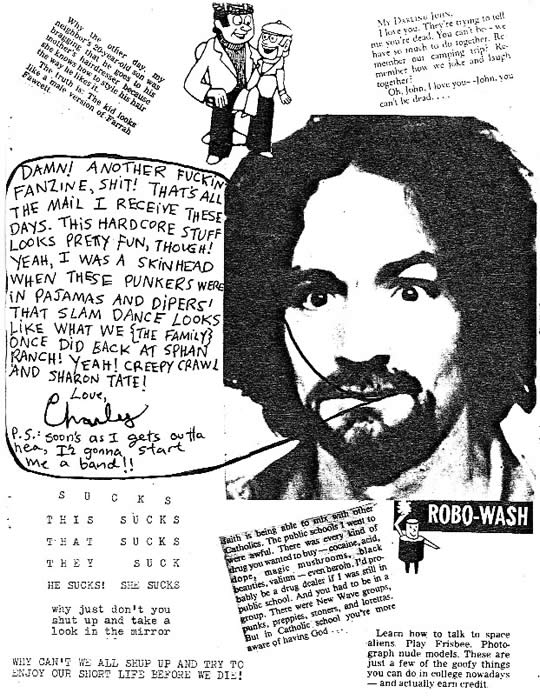 Why the other day, my
neighbor's 20-year-old son was
bragging that he goes to his
mother's hairdresser because
she knows how to style his hair
the way he likes it.
The truth is: The kid looks
like a male version of Farrah
Fawcett.
MY DARLING JOHN,
I love you. They're trying to tell
me you're dead. You can't be--we
have so much to do together. Re-
member our camping trip? Re-
member how we joke and laugh
together?
Oh, John, I love you--John, you
can't be dead. . . .
DAMN! ANOTHER FUCKIN'
FANZINE, SHIT! THAT'S ALL
THE MAIL I RECEIVE THESE
DAYS. THIS HARDCORE STUFF
LOOKS PRETTY FUN, THOUGH!
YEAH, I WAS A SKINHEAD
WHEN THESE PUNKERS WERE
IN PAJAMAS AND DIPERS!
THAT SLAM DANCE LOOKS
LIKE WHAT WE {THE FAMILY}
ONCE DID BACK AT SPHAN
RANCH! YEAH! CREEPY CRAWL
AND SHARON TATE!
LOVE,
Charley
P.S.: soon's as I gets outta
hea, I'z gonna start
me a band!!
S U C K S
THIS SUCKS
THAT SUCKS
THEY SUCK
HE SUCKS! SHE SUCKS
why just don't you
shut up and take a
look in the mirror
WHY CAN'T WE ALL SHUP UP AND TRY TO
ENJOY OUR SHORT LIFE BEFORE WE DIE!
faith is being able to mix with other
Catholics. The public schools I went to
were awful. There was every kind of
drug you wanted to buy — cocaine, acid,
dope, magic mushrooms, black
beauties, valium — even heroin. I'd pro-
bably be a drug dealer if I was still in
public school. And you had to be in a
group. There were New Wave groups,
punks, preppies, stoners, and lorettas.
But in Catholic school you're more
aware of having God . . .
ROBO-WASH
Learn how to talk to space
aliens. Play Frisbee. Photo-
graph nude models. These are
just a few of the goofy things
you can do in college nowadays
— and actually earn credit